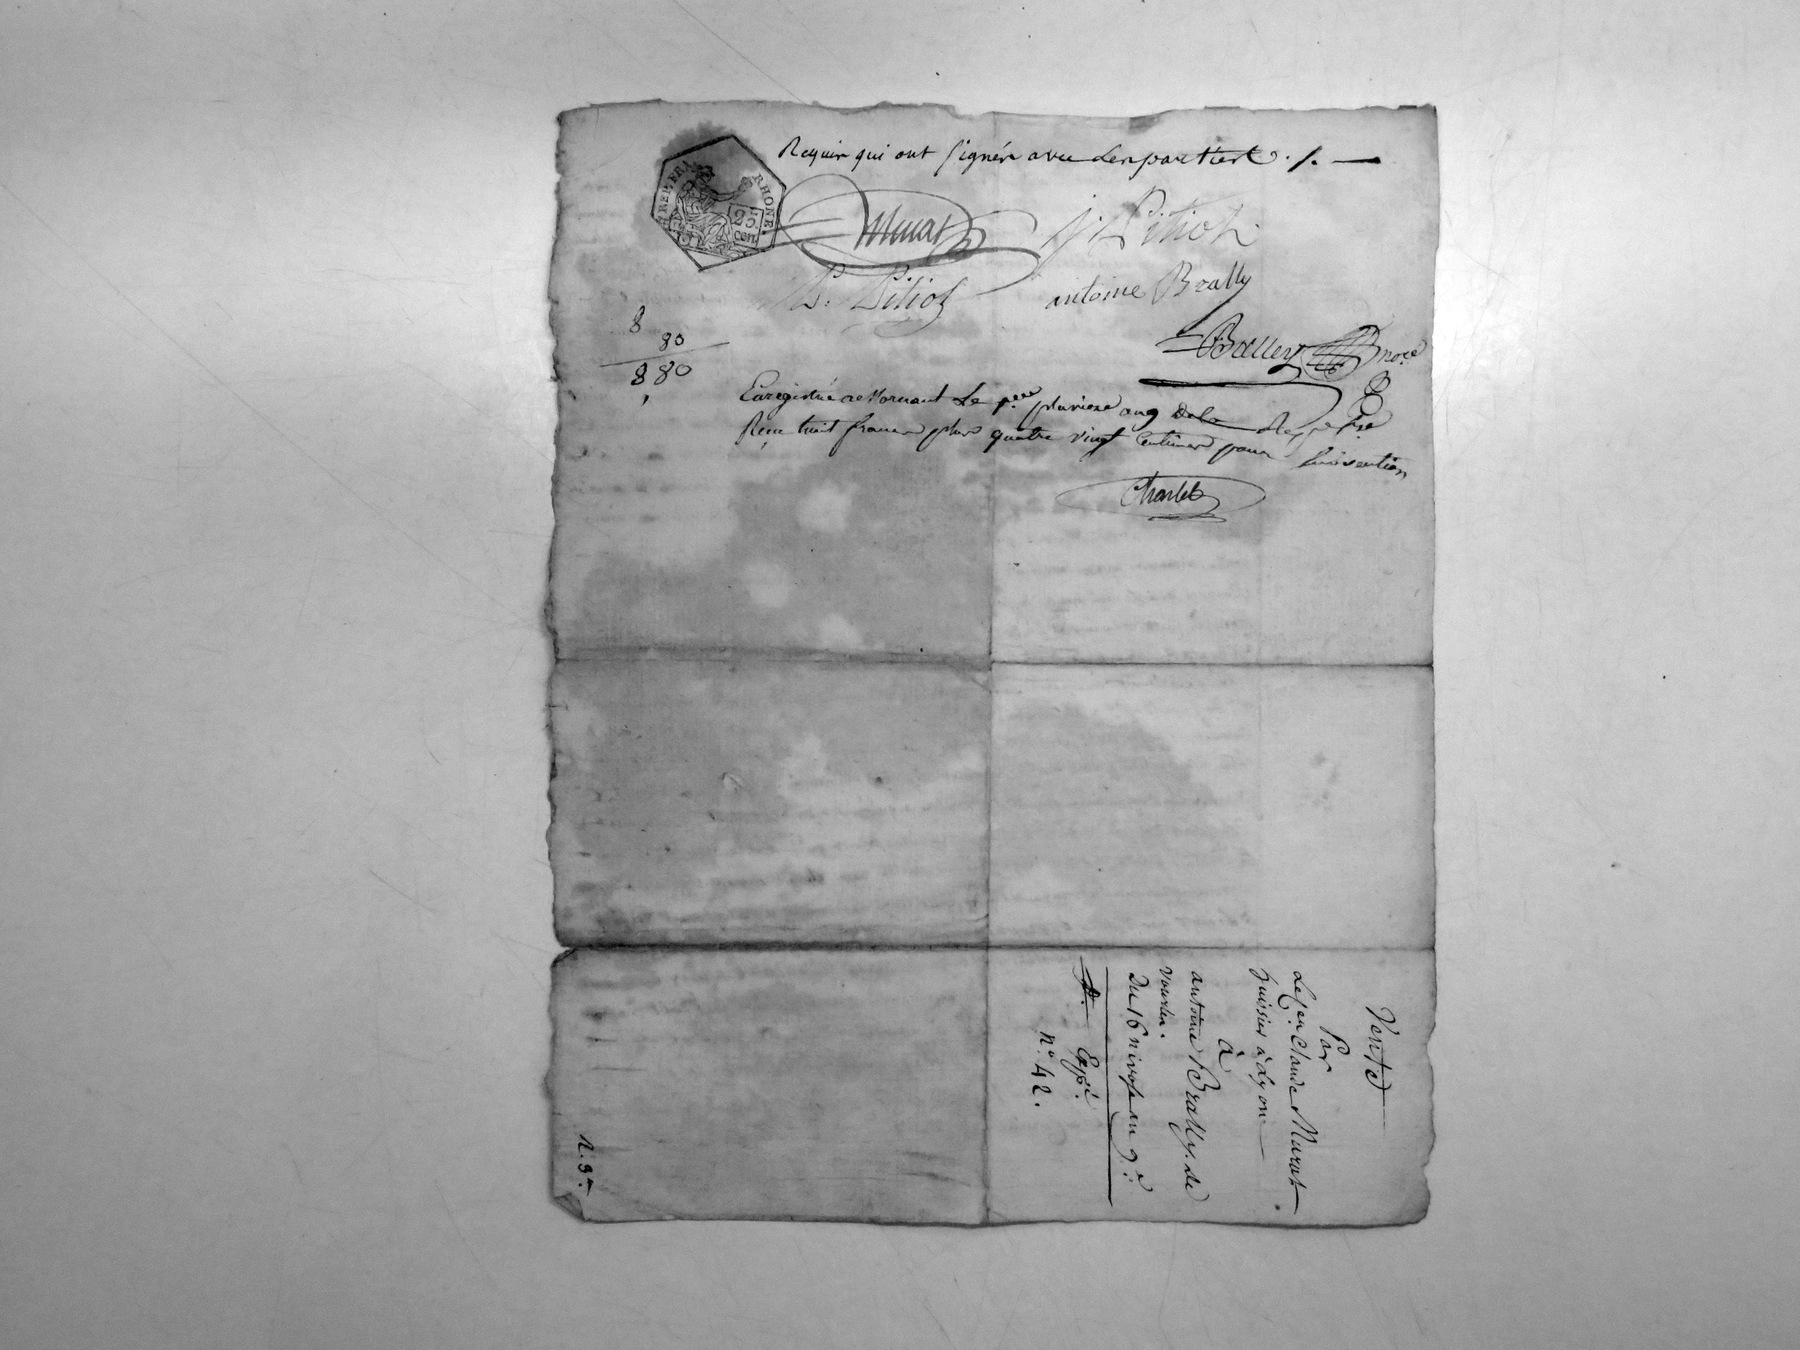 Requis qui ont signés avec les parties ./. —
REP. FRA. RHONE.
25
cen.
Murat J. Pitiot
P. Pitiot antoine Brally
Balley
8
80
8 80
Enregistré a le pier pluviose an 9 de la
Reçu huit francs plus quatre vingt centimes pour subvention
Charlet
Vente
Par
Le Cen. Claude Murat
huissier à Lyon
à
antoine Brally. de
vourles.
Du 16 nivose an 9e.
Expé.
n.° 42.